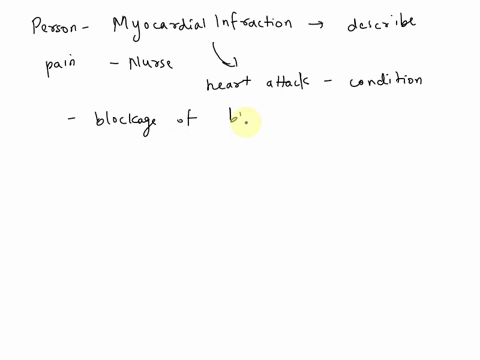 Person - Myocardial Infraction → describe
pain - Nurse
heart attack - condition
- blockage of